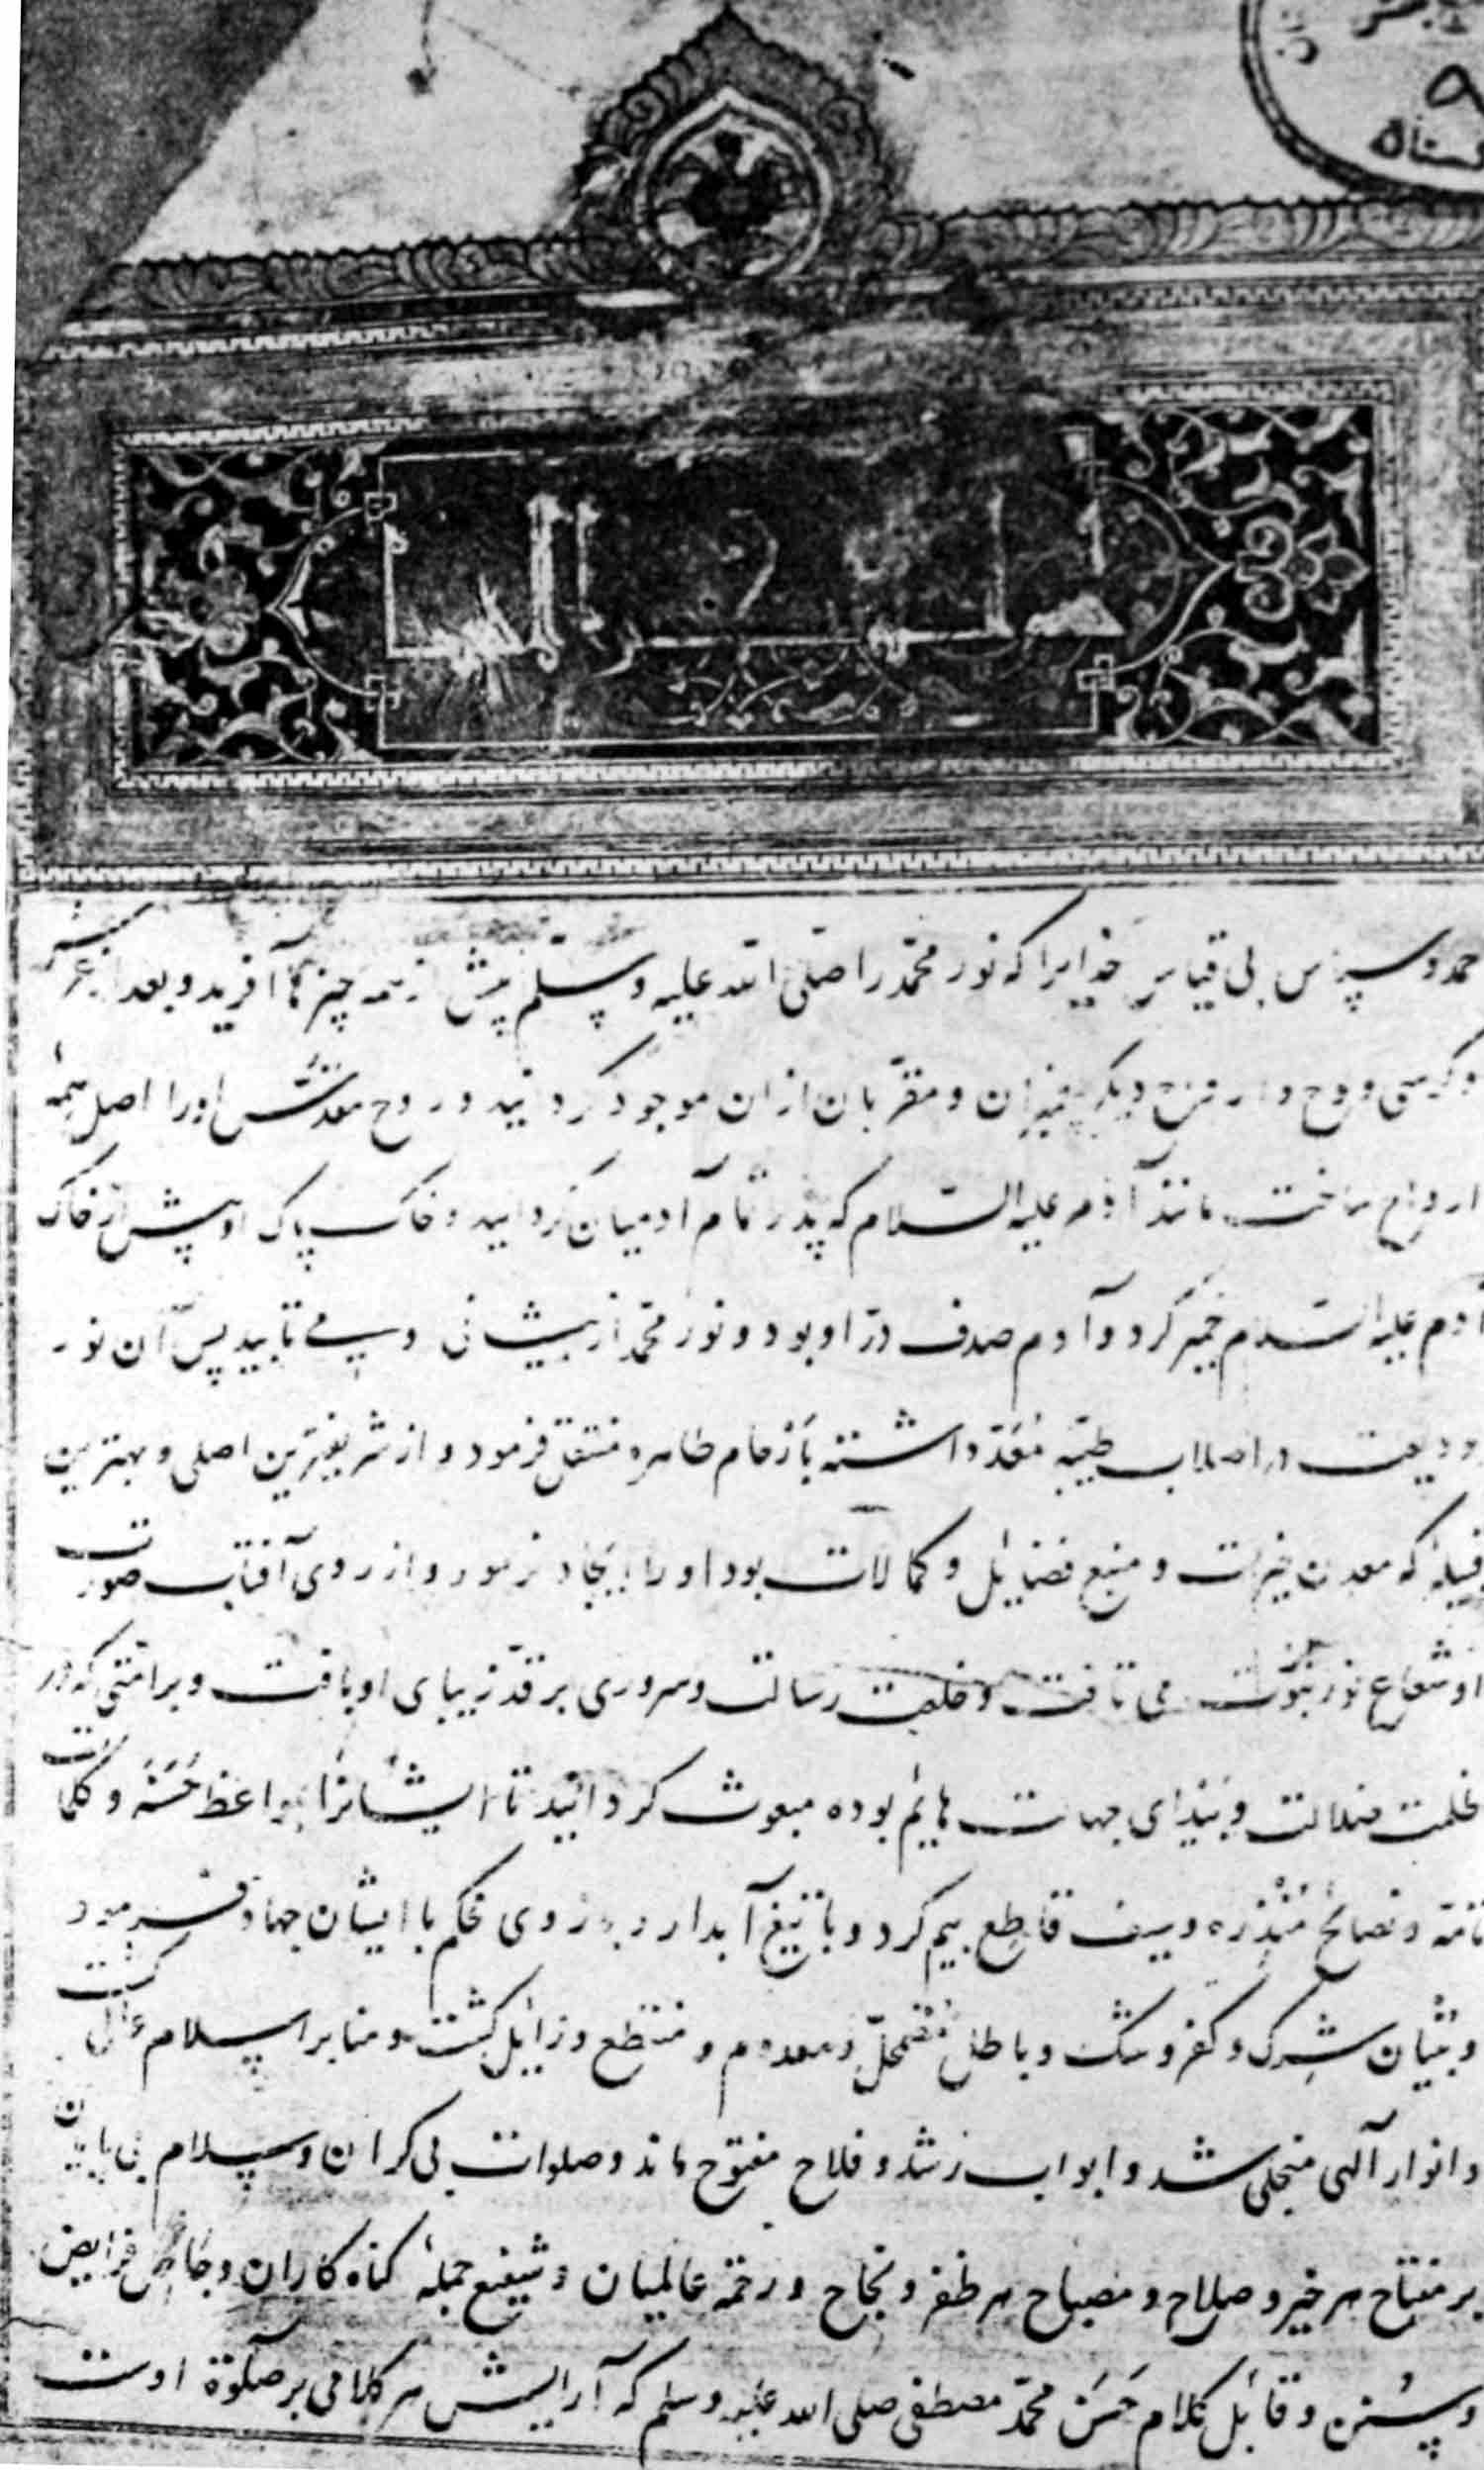 ۹
بسم الله الرحمن الرحیم
حمد و سپاس بی قیاس خدایرا که نور محمد را صلی الله علیه وسلم پیش از همه چیزها آفرید و بعد از عرش
و کرسی و لوح و دیگر پیغمبران و مقربان از ان موجود گردانید و روح مقدس اورا اصل همه
ارواح ساخت مانند آدم علیه السلام که پدر تمام آدمیان گردانید و خاک پاک او پیش از خاک
آدم علیه السلام خمیر کرد و آدم صدف درّ او بود و نور محمد از پیشانی وی می تابید پس آن نور
ودیعت در اصلاب طیّبه داشته بارحام طاهره منتقل فرمود و از شریفترین اصلی و بهترین
قبیلهٔ که معدن خیرات و منبع فضایل و کمالات بود اورا ایجاد فرمود و از روی آفتاب صورت
او شعاع نور نبوّت می تافت و خلعت رسالت و سروری بر قدّ زیبای او یافت و بر امتی که در
ظلمت ضلالت و بیدای جهالت هایم بوده مبعوث گردانید تا ایشانرا بمواعظ حَسَنَه و کلمات
تامّه و نصائح مُنذِره و سیف قاطع بیم کرد و با تیغ آبدار و روی محکم با ایشان جهاد فرمود
و بنیان شرک و کفر و شک و باطل مُضمحلّ و معدوم و منقطع و زایل گشت و منابر اسلام عالی گشت
و انوار آلهی متجلی شد و ابواب رشد و فلاح مفتوح ماند و صلوات بی کران و سلام بی پایان
بر مفتاح هر خیر و صلاح و مصباح هر ظفر و نجاح و رحمة عالمیان و شفیع جملهٔ گناه کاران و فرایض
و سُنن و قائل کلام حَسَن محمّد مصطفی صلی الله علیه وسلم که آرایش هر کلامی بر صلوة اوست